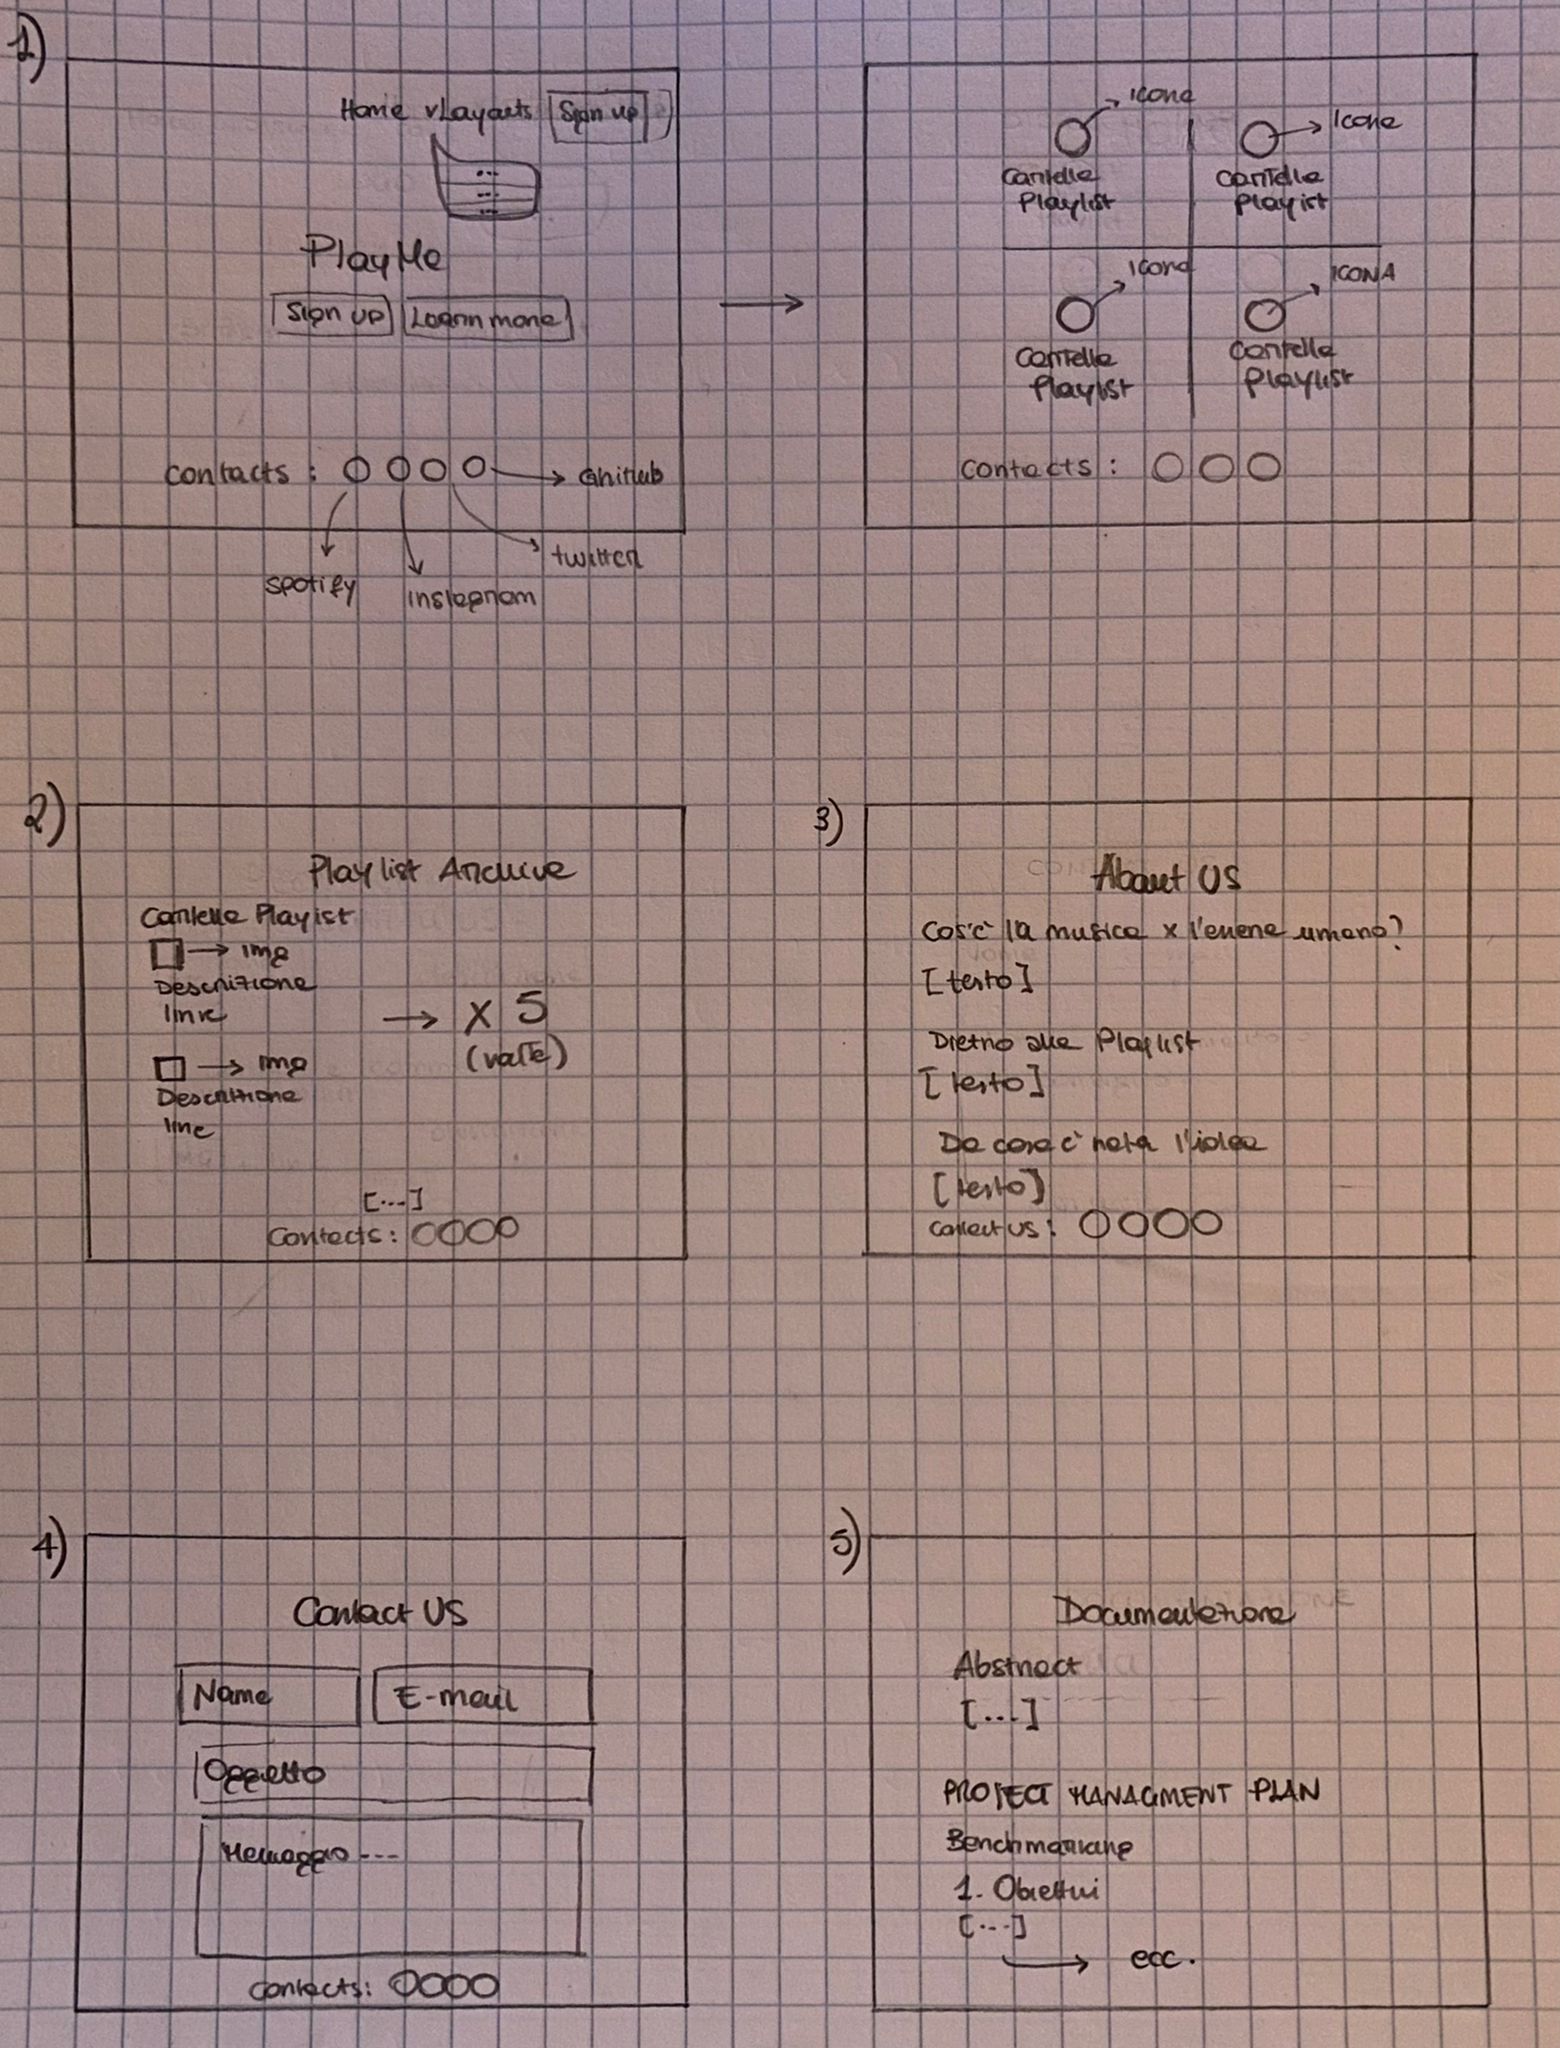 1)
Home vLayouts Sign up
---
---
---
PlayMe
Sign up Learn more
contacts : → GhiHub
spotify instagram twitter
→
icona icona
Cartella Cartella
Playlist Playist
icona ICONA
Cartella Cartella
Playlist Playlist
Contacts :
2)
Playlist Archive
Cartella Playist
→ img
Descrizione
link
→ X 5
(volte)
→ img
Descrizione
link
[...]
Contacts:
3)
About US
Cos'è la musica x l'essere umano?
[testo]
Dietro alle Playlist
[testo]
Da cosa è nata l'idea
[testo]
contact us:
4)
Contact US
Name E-mail
Oggetto
Messaggio ---
contacts:
5)
Documentazione
Abstract
[...]
PROJECT MANAGMENT PLAN
Benchmarking
1. Obiettivi
[...]
→ ecc.